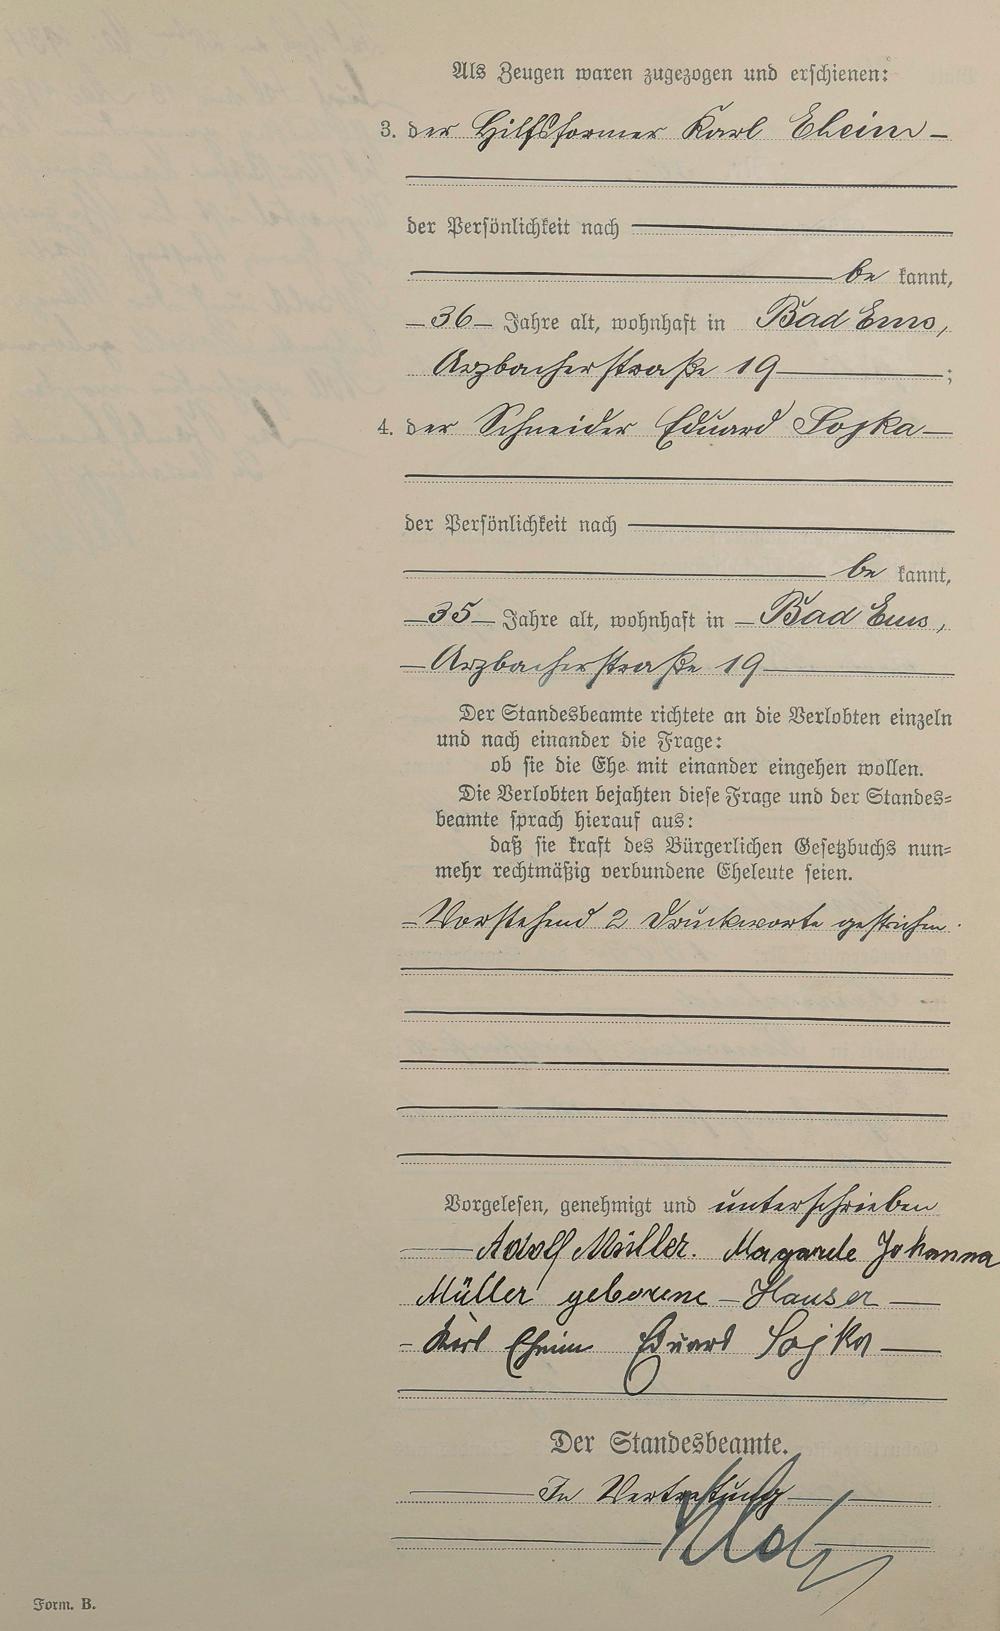 Als Zeugen waren zugezogen und erschienen:
3. der Hilfsformer Karl Eheim
der Persönlichkeit nach
be kannt,
36 Jahre alt, wohnhaft in Bad Ems,
Arzbacherstraße 19 ;
4. der Schneider Eduard Sojka
der Persönlichkeit nach
be kannt,
35 Jahre alt, wohnhaft in Bad Ems,
Arzbacherstraße 19
Der Standesbeamte richtete an die Verlobten einzeln
und nach einander die Frage:
ob sie die Ehe mit einander eingehen wollen.
Die Verlobten bejahten diese Frage und der Standes=
beamte sprach hierauf aus:
daß sie kraft des Bürgerlichen Gesetzbuchs nun=
mehr rechtmäßig verbundene Eheleute seien.
Vorstehend 2 Druckworte gestrichen.
Vorgelesen, genehmigt und unterschrieben
Adolf Müller. Johanna
Müller geborene Hauser
Karl Eheim Eduard Sojka
Der Standesbeamte.
In Vertretung
Form. B.